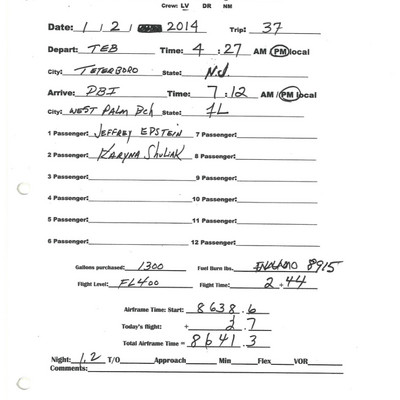 Crew: LV DR NM
Date: 1 / 2 / 2014 Trip: 37
Depart: TEB Time: 4 : 27 AM / PM local
City: TETERBORO State: N.J.
Arrive: PBI Time: 7 : 12 AM / PM local
City: WEST PALM Bch State: FL
1 Passenger: JEFFREY EPSTEIN 7 Passenger:
2 Passenger: KARYNA SHULIAK 8 Passenger:
3 Passenger: 9 Passenger:
4 Passenger: 10 Passenger:
5 Passenger: 11 Passenger:
6 Passenger: 12 Passenger:
Gallons purchased: 1300 Fuel Burn lbs. 8915
Flight Level: FL400 Flight Time: 2 + 44
Airframe Time: Start: 8638.6
Today's flight: + 2.7
Total Airframe Time = 8641.3
Night: 1.2 T/O Approach Min Flex VOR
Comments: